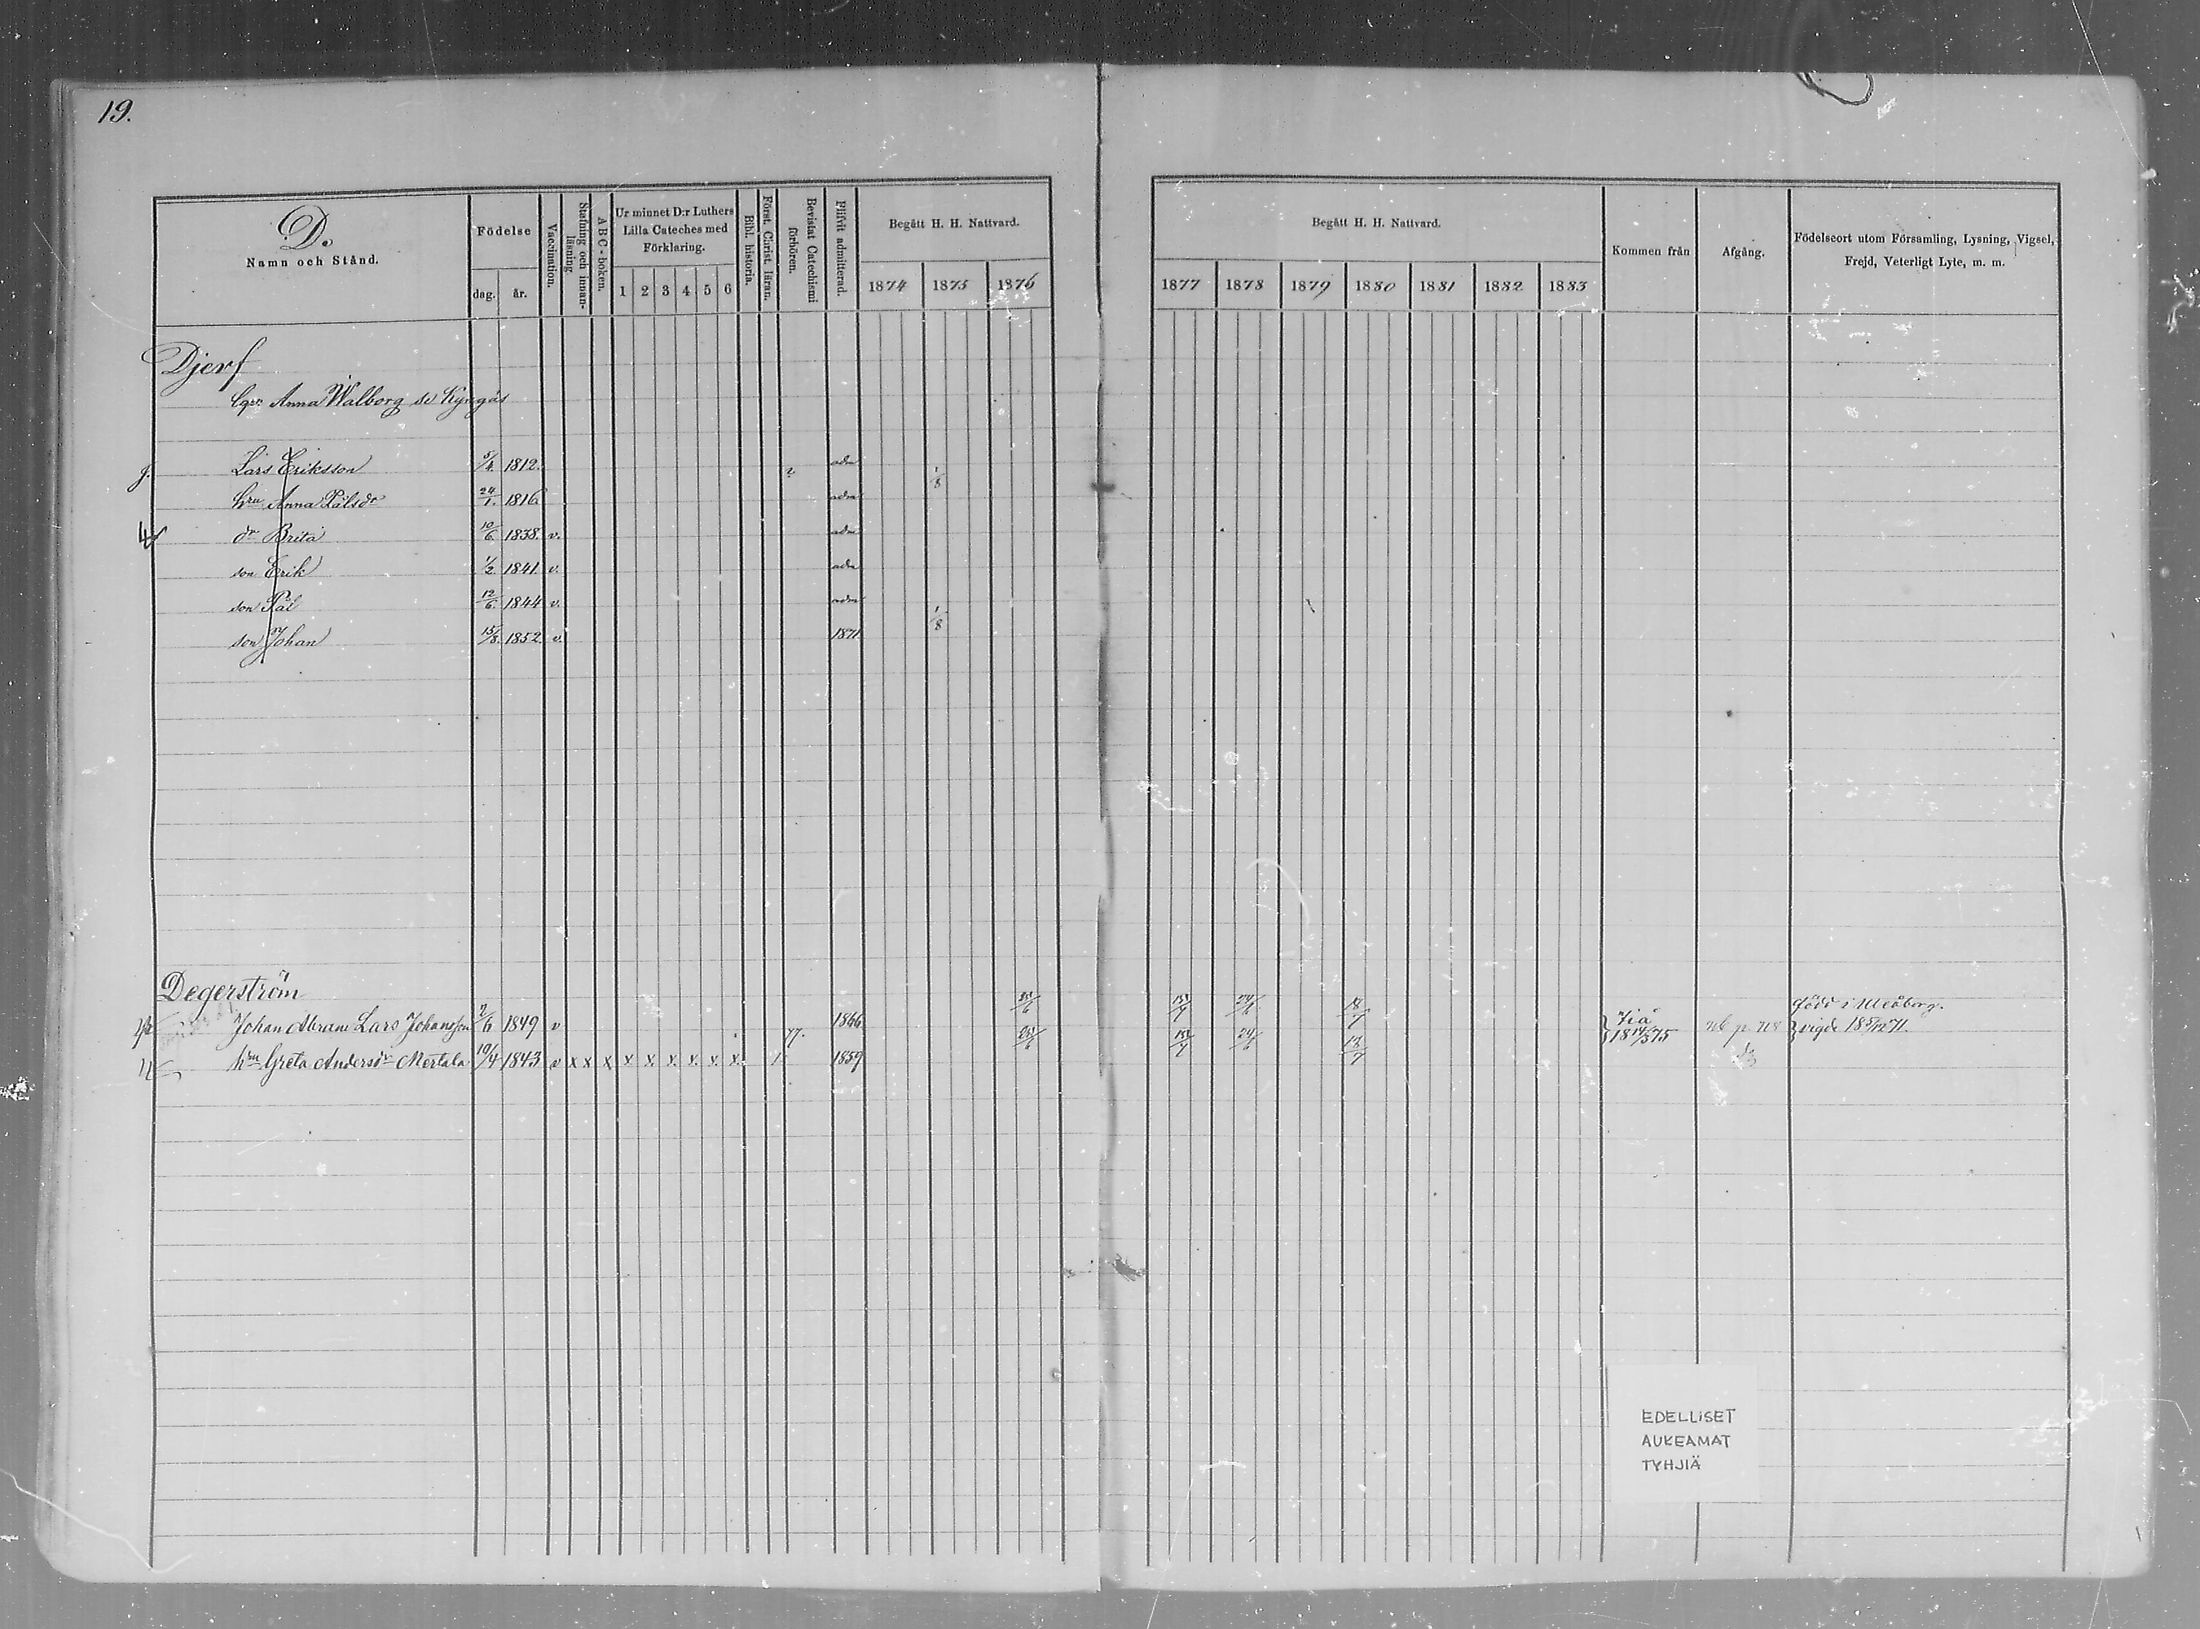 19.
D.
Namn och Stånd.
Födelse
dag. år.
Vaccination.
Stafning och innanläsning
ABC-boken.
Ur minnet D:r Luthers Lilla Cateches med Förklaring.
1 2 3 4 5 6
Bibl. historia.
Först. Christ. läran.
Bevistat Catechismi förhören.
Blifvit admitterad.
Begått H. H. Nattvard.
1874 1875 1876
Begått H. H. Nattvard.
1877 1878 1879 1880 1881 1882 1883
Kommen från
Afgång.
Födelseort utom Församling, Lysning, Vigsel,
Frejd, Veterligt Lyte, m. m.
Djerf
Anna Walborg se Kyngäs
Lars Eriksson 5/4 1812. 2. adm 1/8
hru Anna Pålsdr 24/1. 1816 adm
dr Brita 10/6 1838. v. adm
son Erik 1/2 1841. v. adm
son Pål 12/6. 1844 v. adm 1/8
son Johan 15/8. 1852 v. 1871
Degerström
Johan Abram Lars Johansson 2/6 1849 v 77. 1866 25/6 15/7 24/6 18/7
född i Uleåborg.
18 14/5 75 vigde 18 5/12 71.
hru Greta Andersdr Mertala 10/4 1843 v x x x x x. x. x. x. x. 1 1859 25/6 15/7 24/6 18/7
EDELLISET
AUKEAMAT
TYHJIÄ